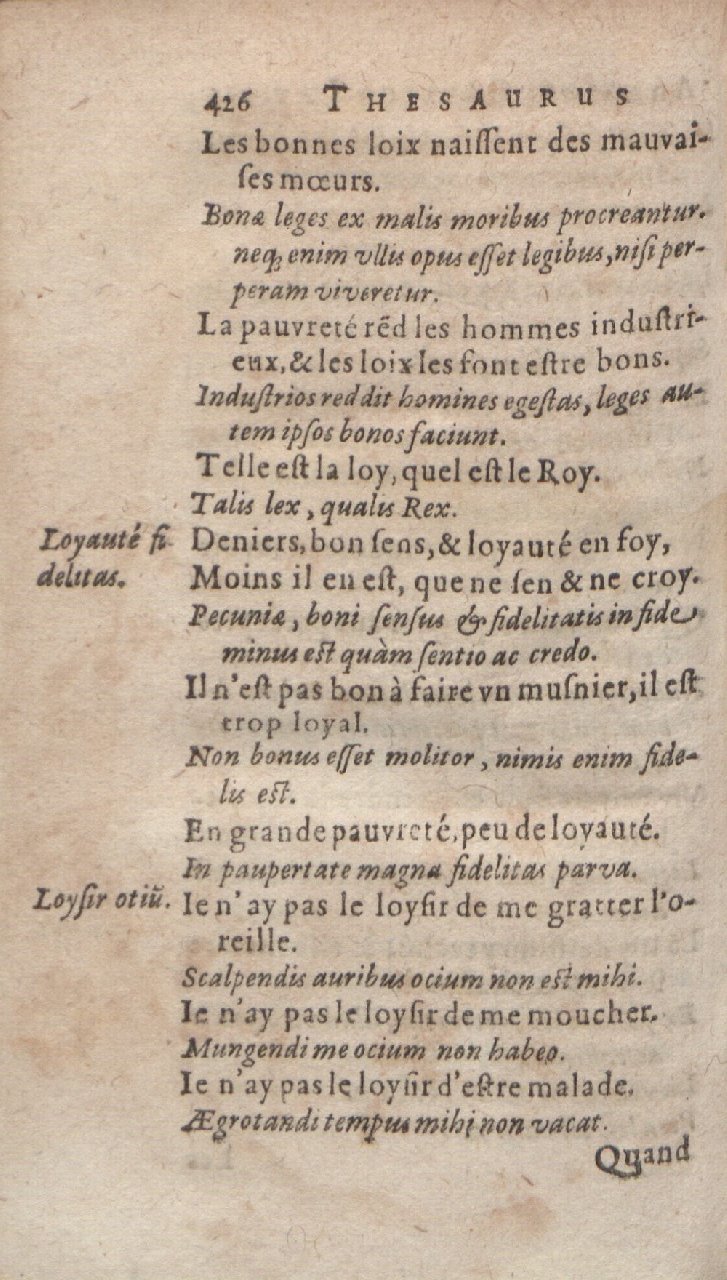 426 THESAURUS
Les bonnes loix naiſſent des mauvai-
ſes mœurs.
Bonæ leges ex malis moribus procreantur.
neq; enim vllis opus eſſet legibus, niſi per-
peram viveretur.
La pauvreté rẽd les hommes induſtri-
eux, & les loix les font eſtre bons.
Induſtrios reddit homines egeſtas, leges au-
tem ipſos bonos faciunt.
Telle eſt la loy, quel eſt le Roy.
Talis lex, qualis Rex.
Loyauté fi
delitas.
Deniers, bon ſens, & loyauté en foy,
Moins il en eſt, que ne ſen & ne croy.
Pecuniæ, boni ſenſus & fidelitatis in fide
minus eſt quàm ſentio ac credo.
Il n'eſt pas bon à faire vn muſnier, il eſt
trop loyal.
Non bonus eſſet molitor, nimis enim fide-
lis eſt.
En grande pauvreté, peu de loyauté.
In paupertate magna fidelitas parva.
Loyſir otiũ.
Ie n'ay pas le loyſir de me gratter l'o-
reille.
Scalpendis auribus ocium non eſt mihi.
Ie n'ay pas le loyſir de me moucher.
Mungendi me ocium non habeo.
Ie n'ay pas le loyſir d'eſtre malade.
Ægrotandi tempus mihi non vacat.
Quand